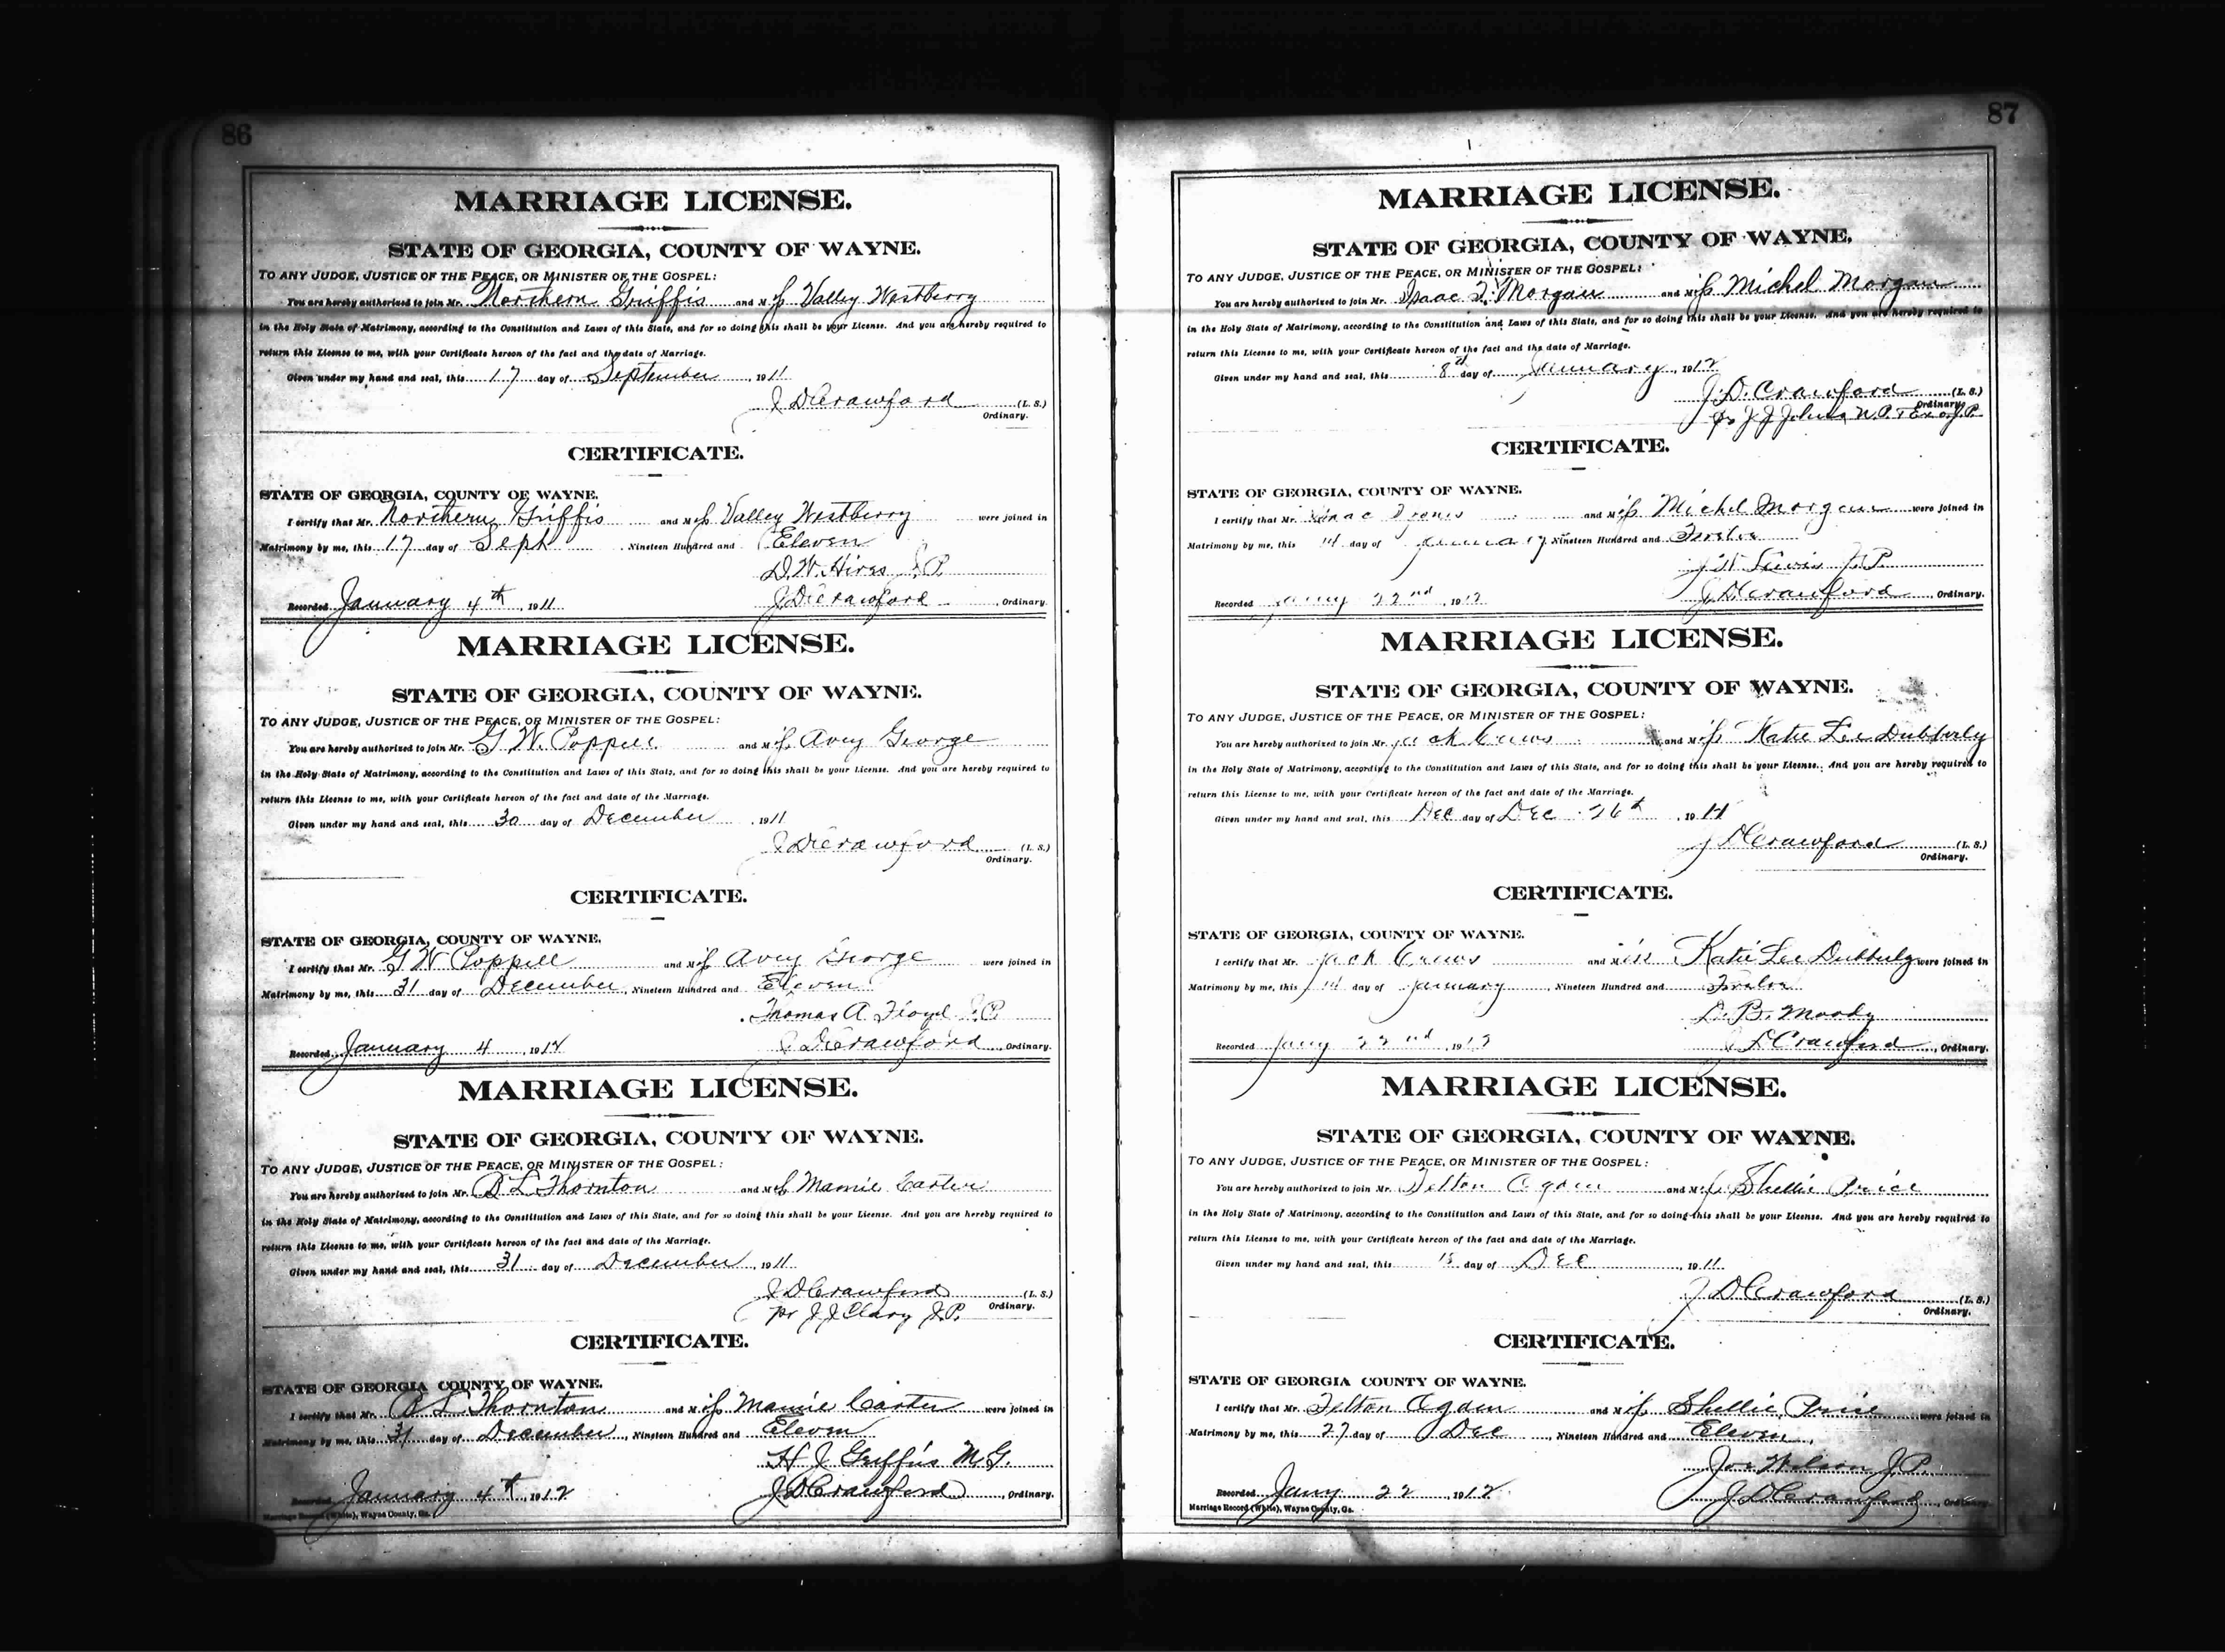 86
MARRIAGE LICENSE.
STATE OF GEORGIA, COUNTY OF WAYNE.
TO ANY JUDGE, JUSTICE OF THE PEACE, OR MINISTER OF THE GOSPEL:
You are hereby authorized to join Mr. Northern Griffis and Miss Valley Westberry
in the Holy State of Matrimony, according to the Constitution and Laws of this State, and for so doing this shall be your License. And you are hereby required to
return this License to me, with your Certificate hereon of the fact and the date of Marriage.
Given under my hand and seal, this 17 day of September, 1911
J D Crawford (L. S.)
Ordinary.
CERTIFICATE.
STATE OF GEORGIA, COUNTY OF WAYNE.
I certify that Mr. Northern Griffis and Miss Valley Westberry were joined in
Matrimony by me, this 17 day of Sept, Nineteen Hundred and Eleven
D. W. Hires J. P.
Recorded January 4th, 1911 J D Crawford, Ordinary.
MARRIAGE LICENSE.
STATE OF GEORGIA, COUNTY OF WAYNE.
TO ANY JUDGE, JUSTICE OF THE PEACE, OR MINISTER OF THE GOSPEL:
You are hereby authorized to join Mr. G W. Poppell and Miss Avey George
in the Holy State of Matrimony, according to the Constitution and Laws of this State, and for so doing this shall be your License. And you are hereby required to
return this License to me, with your Certificate hereon of the fact and date of the Marriage.
Given under my hand and seal, this 30 day of December, 1911
J D Crawford (L. S.)
Ordinary.
CERTIFICATE.
STATE OF GEORGIA, COUNTY OF WAYNE.
I certify that Mr. G W Poppell and Miss Avey George were joined in
Matrimony by me, this 31 day of December, Nineteen Hundred and Eleven
Thomas A Floyd J. P.
Recorded January 4, 1912 J D Crawford, Ordinary.
MARRIAGE LICENSE.
STATE OF GEORGIA, COUNTY OF WAYNE.
TO ANY JUDGE, JUSTICE OF THE PEACE, OR MINISTER OF THE GOSPEL:
You are hereby authorized to join Mr. B L Thornton and Miss Mamie Carter
in the Holy State of Matrimony, according to the Constitution and Laws of this State, and for so doing this shall be your License. And you are hereby required to
return this License to me, with your Certificate hereon of the fact and date of the Marriage.
Given under my hand and seal, this 31 day of December, 1911
J D Crawford (L. S.)
pr J J Clary J. P. Ordinary.
CERTIFICATE.
STATE OF GEORGIA COUNTY OF WAYNE.
I certify that Mr. B L Thornton and Miss Mamie Carter were joined in
Matrimony by me, this 31 day of December, Nineteen Hundred and Eleven
H J Griffis M. G.
Recorded January 4th, 1912 J D Crawford, Ordinary.
Marriage Record (White), Wayne County, Ga.
87
MARRIAGE LICENSE.
STATE OF GEORGIA, COUNTY OF WAYNE.
TO ANY JUDGE, JUSTICE OF THE PEACE, OR MINISTER OF THE GOSPEL:
You are hereby authorized to join Mr. Isaac Morgan and Miss Michel Morgan
in the Holy State of Matrimony, according to the Constitution and Laws of this State, and for so doing this shall be your License. And you are hereby required to
return this License to me, with your Certificate hereon of the fact and the date of Marriage.
Given under my hand and seal, this 8th day of January, 1912
J. D. Crawford (L. S.)
Ordinary.
pr J J Johns N. P. & Exo. J. P.
CERTIFICATE.
STATE OF GEORGIA, COUNTY OF WAYNE.
I certify that Mr. Isaac and Miss Michel Morgan were joined in
Matrimony by me, this 14 day of January Nineteen Hundred and Twelve
J W Lewis J. P.
Recorded Jany 22nd, 1912 J D Crawford, Ordinary.
MARRIAGE LICENSE.
STATE OF GEORGIA, COUNTY OF WAYNE.
TO ANY JUDGE, JUSTICE OF THE PEACE, OR MINISTER OF THE GOSPEL:
You are hereby authorized to join Mr. Jack Crews and Miss Katie Lee Dubberly
in the Holy State of Matrimony, according to the Constitution and Laws of this State, and for so doing this shall be your License. And you are hereby required to
return this License to me, with your Certificate hereon of the fact and date of the Marriage.
Given under my hand and seal, this Dec day of Dec 26th, 1911
J D Crawford (L. S.)
Ordinary.
CERTIFICATE.
STATE OF GEORGIA, COUNTY OF WAYNE.
I certify that Mr. Jack Crews and Miss Katie Lee Dubberly were joined in
Matrimony by me, this 14 day of January, Nineteen Hundred and Twelve
D. B. Moody
Recorded Jany 22nd, 1912 J D Crawford, Ordinary.
MARRIAGE LICENSE.
STATE OF GEORGIA, COUNTY OF WAYNE.
TO ANY JUDGE, JUSTICE OF THE PEACE, OR MINISTER OF THE GOSPEL:
You are hereby authorized to join Mr. Felton Ogden and Miss Shellie Price
in the Holy State of Matrimony, according to the Constitution and Laws of this State, and for so doing this shall be your License. And you are hereby required to
return this License to me, with your Certificate hereon of the fact and date of the Marriage.
Given under my hand and seal, this 15 day of Dec, 1911
J D Crawford (L. S.)
Ordinary.
CERTIFICATE.
STATE OF GEORGIA COUNTY OF WAYNE.
I certify that Mr. Felton Ogden and Miss Shellie Price were joined in
Matrimony by me, this 27 day of Dec, Nineteen Hundred and Eleven,
Joe Wilson J. P.
Recorded Jany 22, 1912 J D Crawford, Ordinary.
Marriage Record (White), Wayne County, Ga.